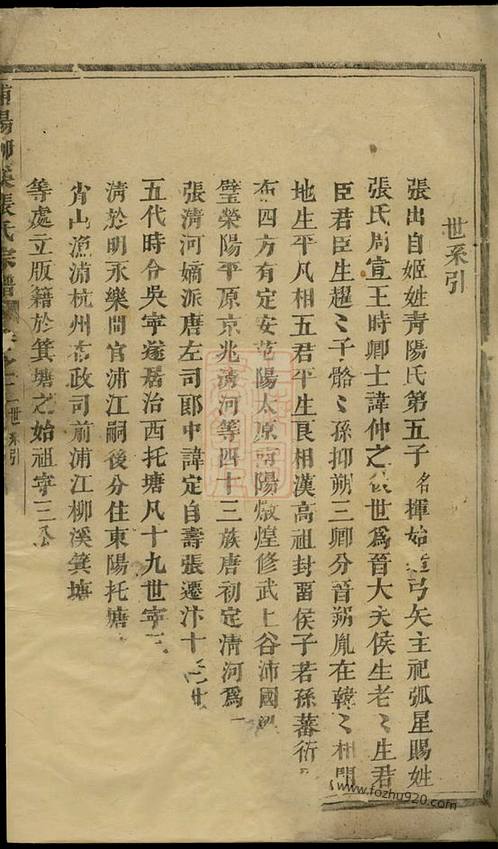 世系引
張出自姬姓青陽氏第五子名揮始造弓矢主祀弧星賜姓
張氏周宣王時卿士諱仲之後世為晉大夫侯生老〻生君
臣君臣生趯〻子骼〻孫抑朔三卿分晉朔胤在韓〻相開
地生平凡相五君平生良相漢高祖封畱侯子若孫蕃衍
布四方有定安范陽太原南陽燉煌修武上谷沛國
璧榮陽平原京兆清河等四十三族唐初定清河為一
張清河嫡派唐左司郎中諱定自壽張遷汴十世
五代時令吳寧遂居治西托塘凡十九世寧三
清於明永樂間官浦江嗣後分住東陽托塘
肖山漁浦杭州布政司前浦江柳溪箕塘
等處立版籍於箕塘之始祖寧三公
浦陽柳溪張氏宗譜
世系引
www.fozhu920.com